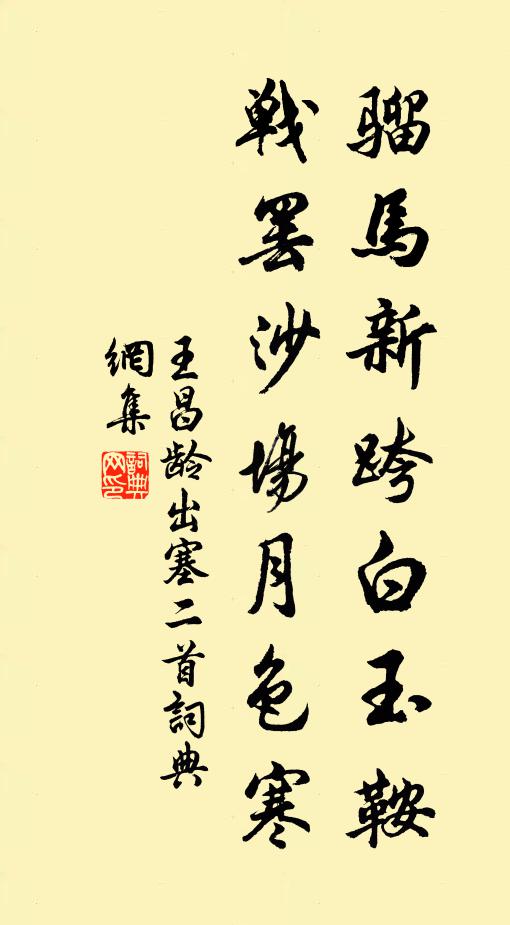 骝馬新跨白玉鞍
戰罷沙場月色寒
王昌龄出塞二首詞典
網集
詞典
网印